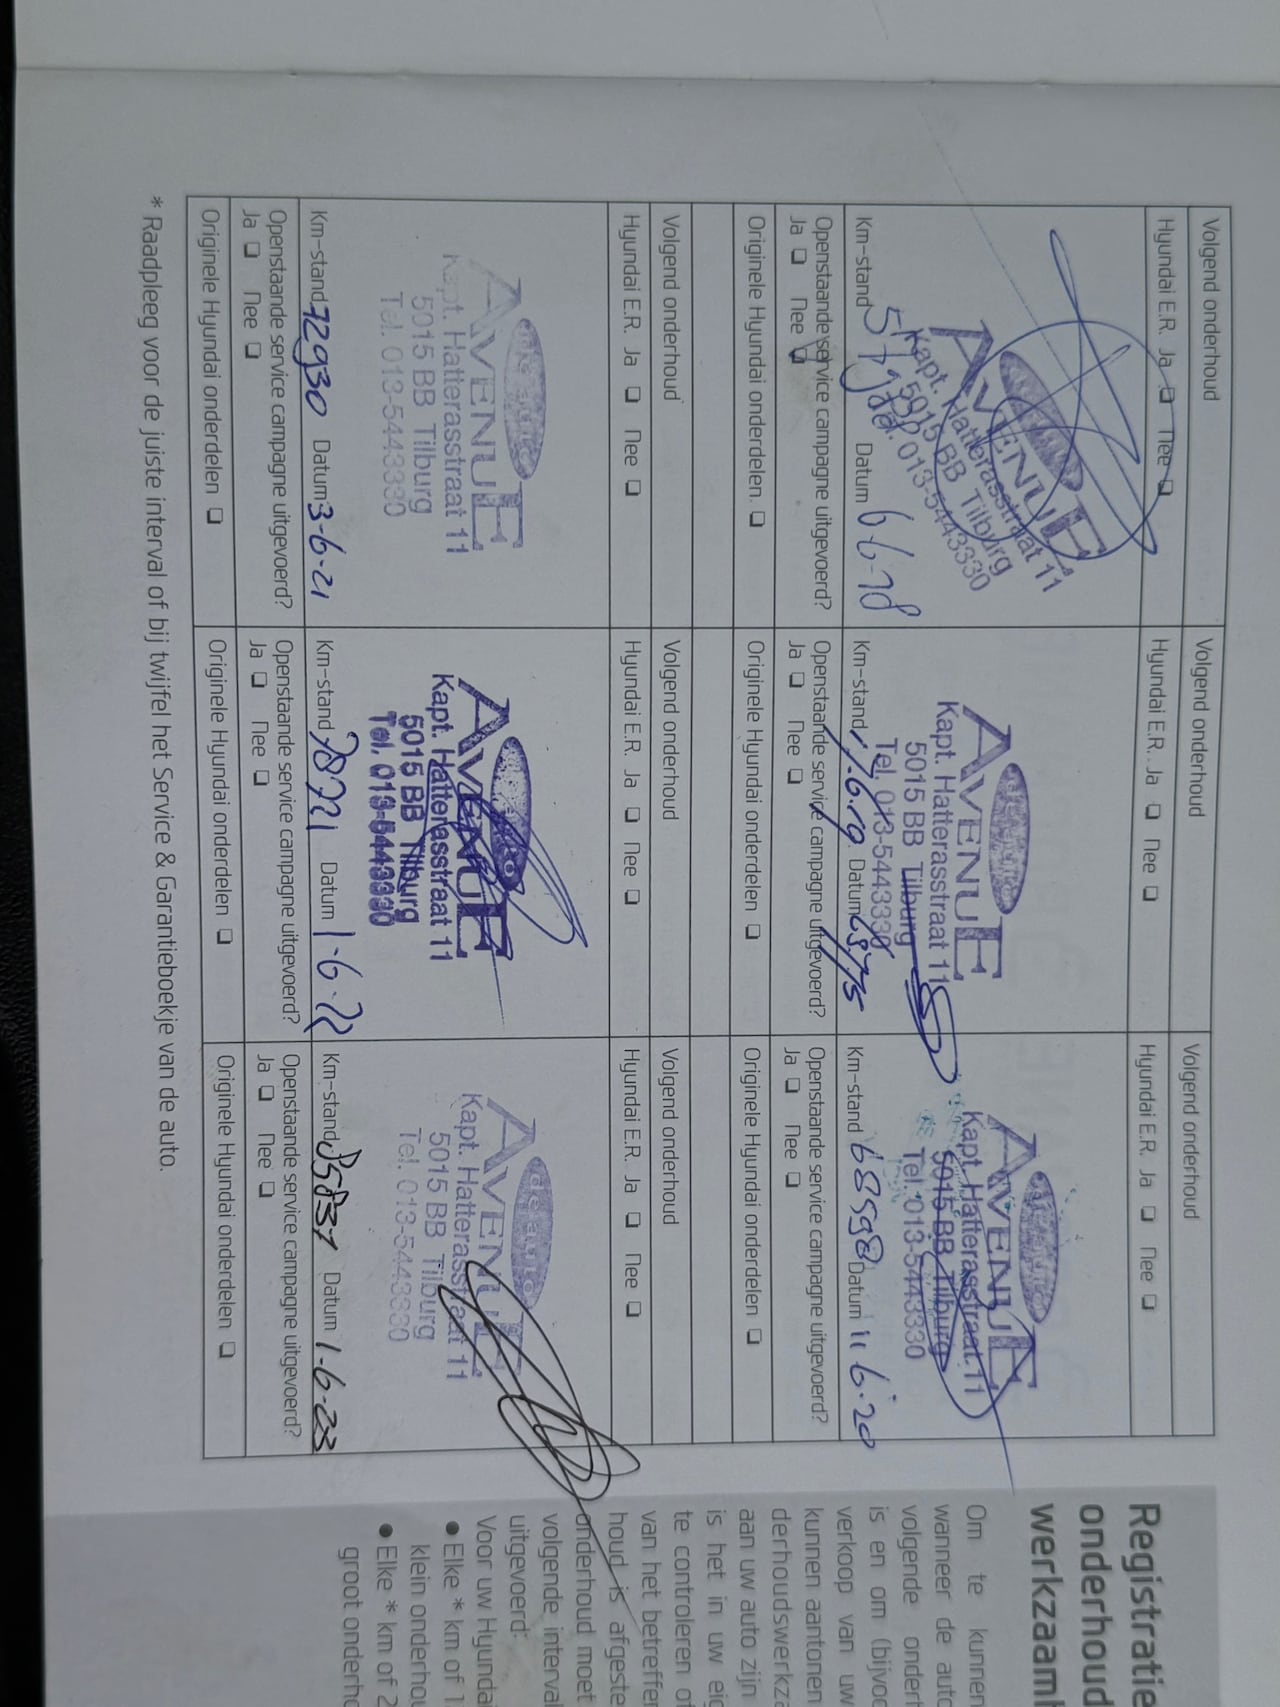 Volgend onderhoud
Hyundai E.R. Ja ❑ Nee ❑
de auto
AVENUE
Kapt. Hatterasstraat 11
5015 BB Tilburg
Tel. 013-5443330
Km-stand Datum 6-6-18
Openstaande service campagne uitgevoerd?
Ja ❑ Nee ❑
Originele Hyundai onderdelen. ❑
Volgend onderhoud
Hyundai E.R. Ja ❑ Nee ❑
de auto
AVENUE
Kapt. Hatterasstraat 11
5015 BB Tilburg
Tel. 013-5443330
Km-stand Datum
Openstaande service campagne uitgevoerd?
Ja ❑ Nee ❑
Originele Hyundai onderdelen ❑
Volgend onderhoud
Hyundai E.R. Ja ❑ Nee ❑
de auto
AVENUE
Kapt. Hatterasstraat 11
5015 BB Tilburg
Tel. 013-5443330
Km-stand 68598 Datum 11 6-20
Openstaande service campagne uitgevoerd?
Ja ❑ Nee ❑
Originele Hyundai onderdelen ❑
Volgend onderhoud
Hyundai E.R. Ja ❑ Nee ❑
de auto
AVENUE
Kapt. Hatterasstraat 11
5015 BB Tilburg
Tel. 013-5443330
Km-stand 72930 Datum 3-6-21
Openstaande service campagne uitgevoerd?
Ja ❑ Nee ❑
Originele Hyundai onderdelen ❑
Volgend onderhoud
Hyundai E.R. Ja ❑ Nee ❑
AVENUE
Kapt. Hatterasstraat 11
5015 BB Tilburg
Tel. 013-5443330
Km-stand 78721 Datum 1-6-22
Openstaande service campagne uitgevoerd?
Ja ❑ Nee ❑
Originele Hyundai onderdelen ❑
Volgend onderhoud
Hyundai E.R. Ja ❑ Nee ❑
de auto
AVENUE
Kapt. Hatterasstraat 11
5015 BB Tilburg
Tel. 013-5443330
Km-stand Datum 1-6-23
Openstaande service campagne uitgevoerd?
Ja ❑ Nee ❑
Originele Hyundai onderdelen ❑
* Raadpleeg voor de juiste interval of bij twijfel het Service & Garantieboekje van de auto.
Registratie
onderhoud
werkzaamh
Om te kunnen
wanneer de auto
volgende onderh
is en om (bijvoo
verkoop van uw
kunnen aantonen
derhoudswerkza
aan uw auto zijn
is het in uw eig
te controleren of
van het betreffen
houd is afgeste
onderhoud moet
volgende interval
uitgevoerd:
Voor uw Hyundai
● Elke * km of 1
klein onderhou
● Elke * km of 2
groot onderho